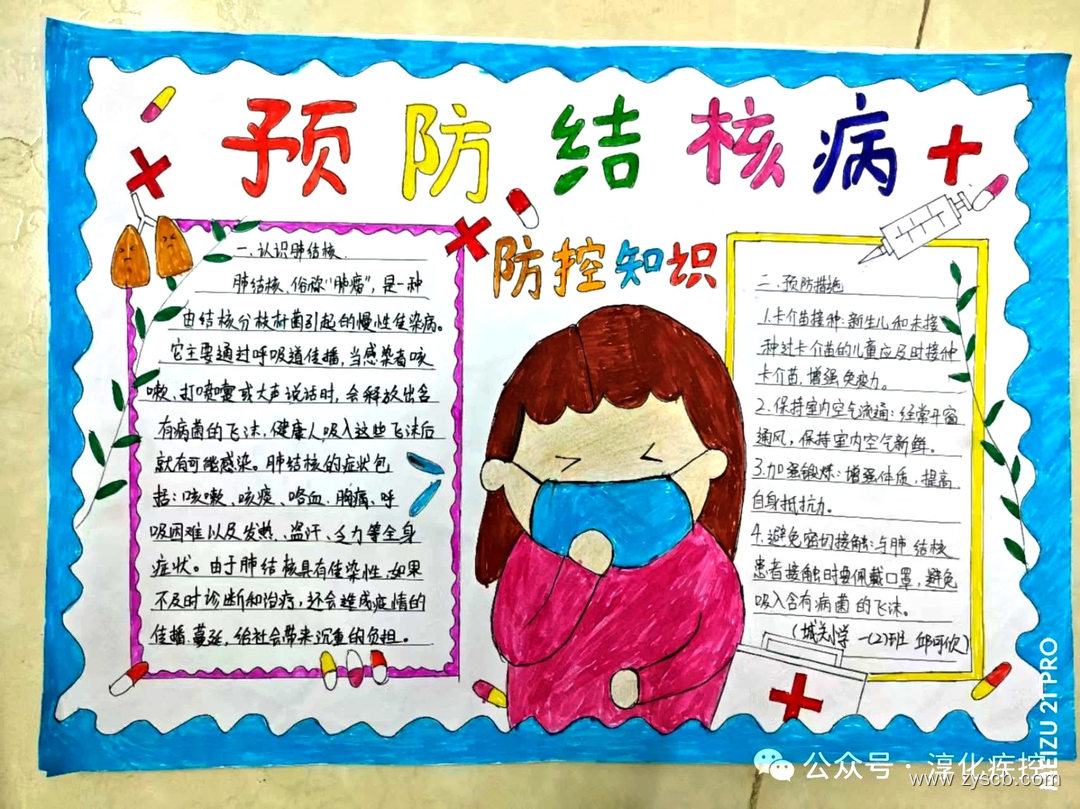 预防结核病
防控知识
一、认识肺结核.
肺结核、俗称"肺痨",是一种
由结核分枝杆菌引起的慢性传染病。
它主要通过呼吸道传播,当感染者咳
嗽、打喷嚏或大声说话时,会释放出含
有病菌的飞沫,健康人吸入这些飞沫后
就有可能感染。肺结核的症状包
括:咳嗽、咳痰、咯血、胸痛、呼
吸困难以及发热、盗汗、乏力等全身
症状。由于肺结核具有传染性,如果
不及时诊断和治疗,还会造成疫情的
传播、蔓延,给社会带来沉重的负担。
二、预防措施
1.卡介苗接种:新生儿和未接
种过卡介苗的儿童应及时接种
卡介苗,增强免疫力。
2.保持室内空气流通:经常开窗
通风,保持室内空气新鲜。
3.加强锻炼:增强体质,提高
自身抵抗力。
4.避免密切接触:与肺结核
患者接触时要佩戴口罩,避免
吸入含有病菌的飞沫。
(城关小学 一(2)班 邱可欣)
MEIZU 21 PRO
公众号·淳化疾控
www.zyscb.com